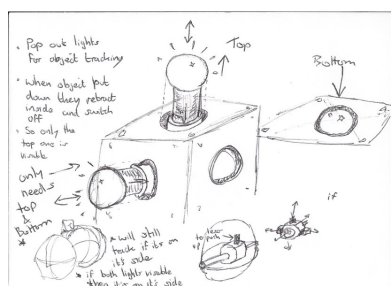 • Pop out lights
for object tracking
• when object put
down they retract
inside and switch
off
• So only the
top one is
visable
only
needs
top
&
Bottom
*
Top
Bottom
if
* will still
track if it's on
it's side
* if both lights visable
then it is on it's side
lever
to push